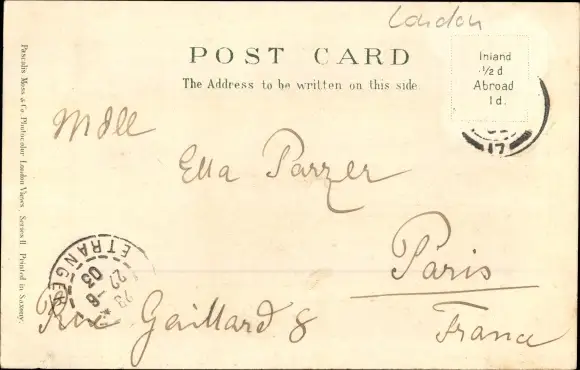 London
POST CARD
The Address to be written on this side.
Inland
½ d
Abroad
1 d.
17
Mdlle
Ella Parzer
Paris
Rue Gaillard 8
France
ETRANGER
03
Pascalis Moss & Co Photocolor London Views Series II Printed in Saxony.